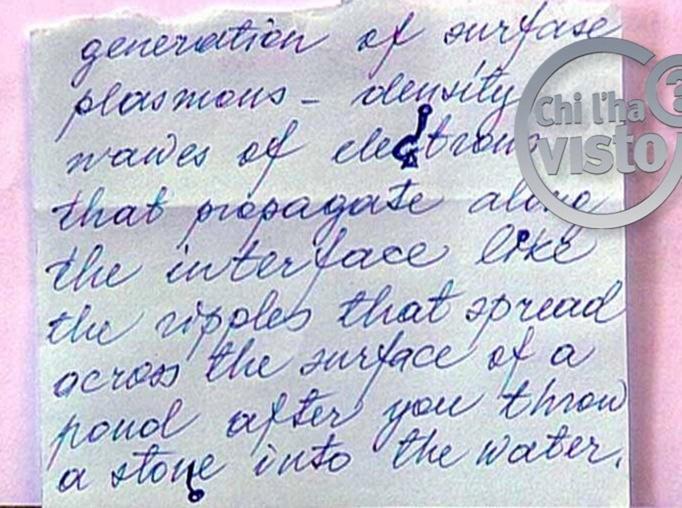 generation of surfase
plasmons - density
wawes of electrons
that propagate along
the interface like
the ripples that spread
across the surface of a
pond after you throw
a stone into the water.
Chi l'ha
visto?